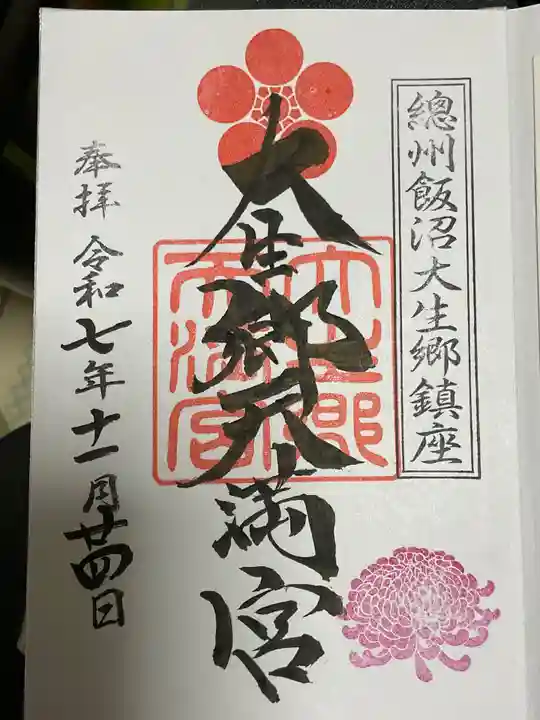 總州飯沼大生郷鎮座
大生郷天満宮
大生郷天満宮
奉拝 令和七年十一月廿四日